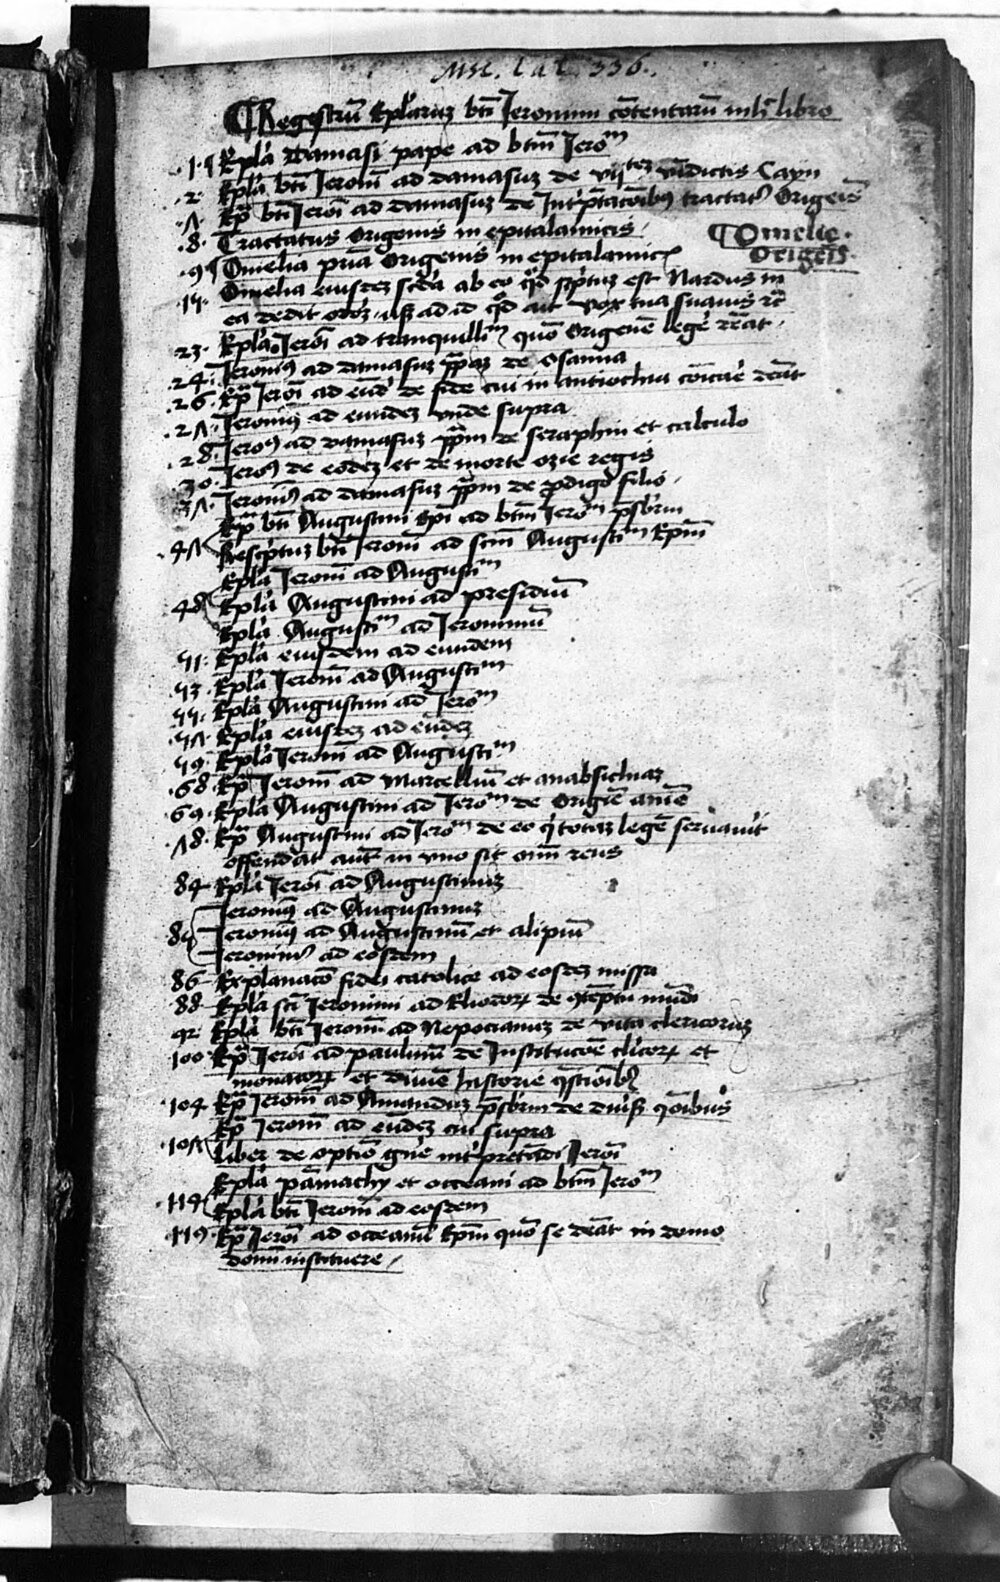 Msc. Lat. 336.
Regestrũ Epl'aruʒ bti Jeronimi cõtentarũ in h' libro
.1. Epl'a Damasi pape ad btm Jerom
.2. Epl'a bti Jeronĩ ad damasuʒ de vijtez vĩdictis Cayn
.7. Ep̃ bti Jeroĩ ad damasuʒ de Int'p̃tacõibꝫ tractat' Origeĩs
.8. Tractatus Origenis in epitalamicis
Omelie
Origeĩs
.9. Omelia prĩa Origenis in epitalamic
.15. Omelia eiusdeʒ scd'a ab eo qd' sc'ptuʒ est Nardus m
ea dedit odoʒ usqꝫ ad id qd' ait vox tua suauis ec
23. Epl'a Jeroĩ ad tranquillim quõ Origenẽ lege' deat
.24. Jeronimꝰ ad damasuʒ ppaʒ de osanna
.26. Ep̃ Jeroĩ ad eund' de fide cui in antiochia cõicar̃ deãt
.27. Jeronimꝰ ad eundeʒ vnde supra
.28. Jeroꝰ ad damasuʒ ppm de seraphin et calculo
30. Jeroꝰ de eodeʒ et de morte ozie regis
37. Jeronimꝰ ad damasuʒ ppm de ꝓdigo filio
Ep̃ bti Augustini Epi ad btm Jerom psb'rm
.47. Rescptuʒ bti Jeroni ad scm Augustim Epm
Epl'a Jeronĩ ad Augustim
48. Epl'a Augustini ad presidiũ
Epl'a Augustim ad Jeronimũ
51. Epl'a eiusdem ad eundem
53. Epl'a Jeronĩ ad Augustim
55. Epl'a Augustini ad Jerom
.57. Epl'a eiusdeʒ ad eũdeʒ
59. Epl'a Jeronĩ ad Augustim
.68. Ep̃ Jeronĩ ad marcelliũ et anapsichiaʒ
69. Epl'a Augustini ad Jerom de Origiẽ anĩe
.78. Ep̃ Augustini ad Jerom de eo q' totaʒ legẽ seruauit
offendat aut in vno sit oĩm reus
84 Epl'a Jeroĩ ad Augustinuʒ
Jeronimꝰ ad Augustinuʒ
85 Jeronimꝰ ad Augustinũ et alipiũ
Jeronimꝰ ad eosdem
86 Explanacõ fidei catolice ad eosdeʒ missa
88 Epl'a sci Jeronimi ad Eliodoꝝ de ꝯteptu mũdi
92 Epl'a bti Jeronĩ ad Nepocianuʒ de vita clericoruʒ
100 Ep̃ Jeroĩ ad paulinũ de Institucõe cl'icoꝝ et
monacoꝝ et diuie historie qstioibꝫ
.104. Ep̃ Jeronĩ ad Amanduʒ psb'rm de diuis' qõibus
Ep̃ Jeronĩ ad eũdeʒ cui supra
.107 Liber de optio gn'e int'pretadi Jeroĩ
Epl'a pãmachy et occeani ad btm Jerom
.114 Epl'a bti Jeronĩ ad eosdem
.119. Ep̃ Jeroĩ ad occeanũ Epm quõ se deãt in domo
domĩ instituere